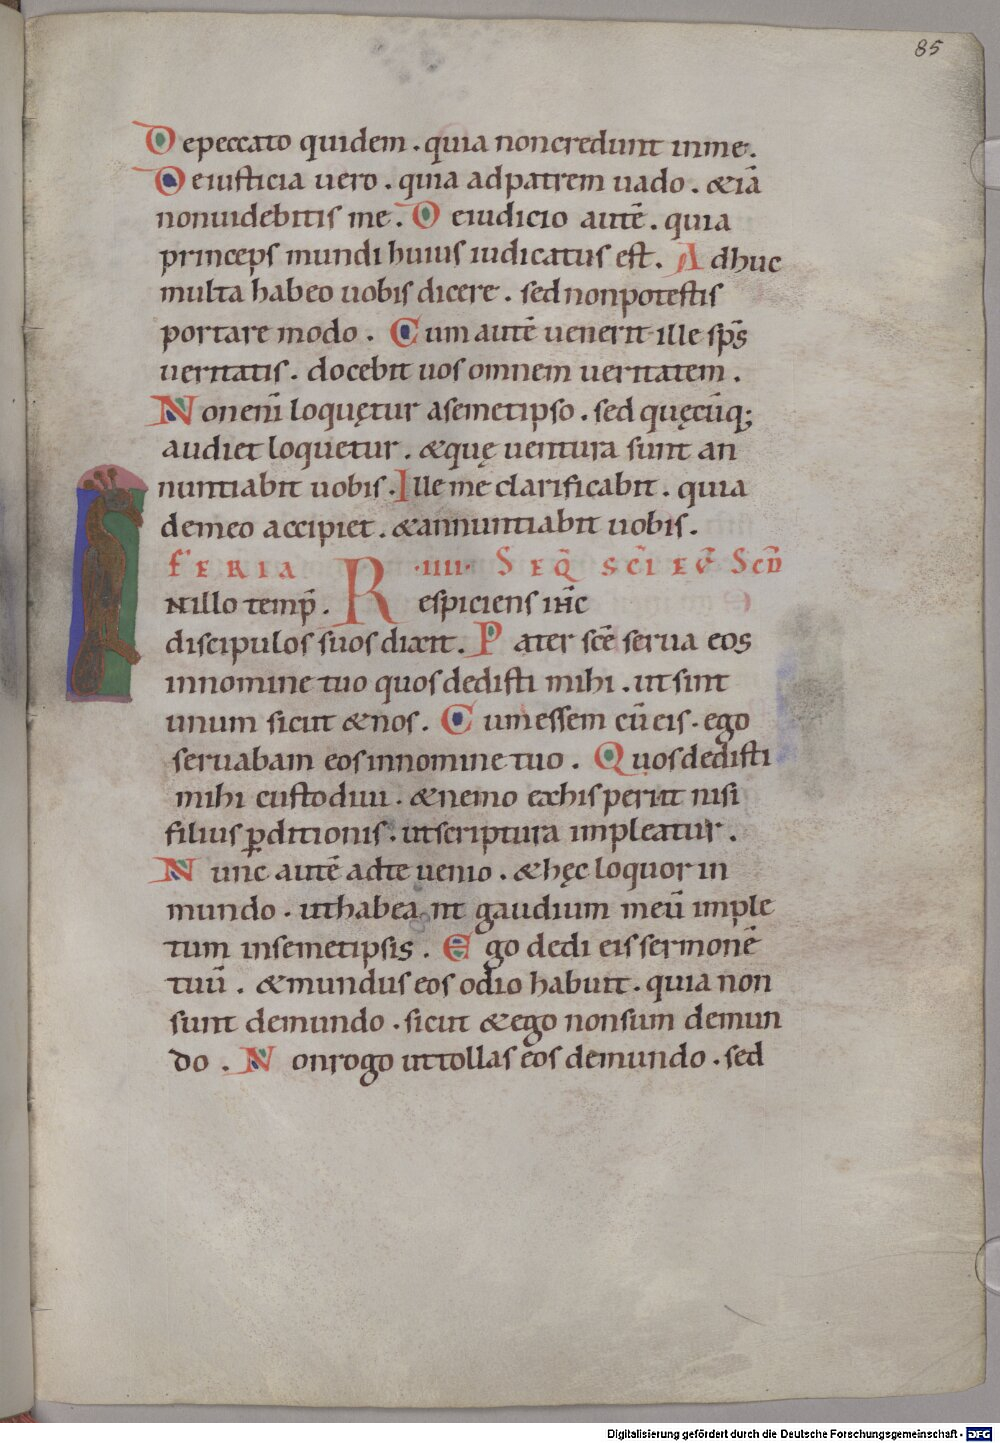 85
De peccato quidem . quia non credunt in me .
De iusticia uero . quia ad patrem uado . & iā
non uidebitis me . De iudicio autē . quia
princeps mundi huius iudicatus est . Adhuc
multa habeo uobis dicere . sed non potestis
portare modo . Cum autē uenerit ille sps̄
ueritatis . docebit uos omnem ueritatem .
Non eni̅ loquętur a semetipso . sed quęcūq;
audiet loquetur . & quę uentura sunt an
nuntiabit uobis . Ille me clarificabit . quia
de meo accipiet . & annuntiabit uobis .
FERIA ·IIII· SEQ̄ SC̄I EV̄ SCD̄
IN illo temp̄ . Respiciens ih̄c
discipulos suos dixit . Pater sc̄e serua eos
in nomine tuo quos dedisti mihi . ut sint
unum sicut & nos . Cum essem cū eis . ego
seruabam eos in nomine tuo . Quos dedisti
mihi custodiui . & nemo ex his periit nisi
filius ꝑditionis . ut scriptura impleatur .
Nunc autē ad te uenio . & hęc loquor in
mundo . ut habeant gaudium meū imple
tum in semetipsis . Ego dedi eis sermonē
tuū . & mundus eos odio habuit . quia non
sunt de mundo . sicut & ego non sum de mun
do . Non rogo ut tollas eos de mundo . sed
Digitalisierung gefördert durch die Deutsche Forschungsgemeinschaft - DFG